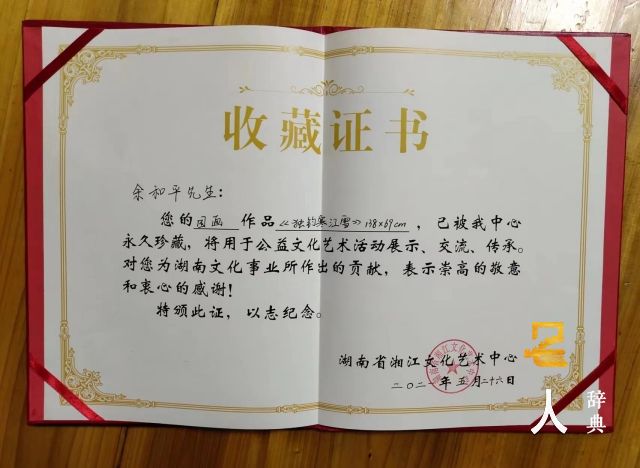 收藏证书
余和平先生:
您的国画作品《独钓寒江雪》138×69cm,已被我中心
永久珍藏,将用于公益文化艺术活动展示、交流、传承。
对您为湖南文化事业所作出的贡献,表示崇高的敬意
和衷心的感谢!
特颁此证,以志纪念。
湖南省湘江文化艺术中心
二〇二一年五月二十六日
人辞典